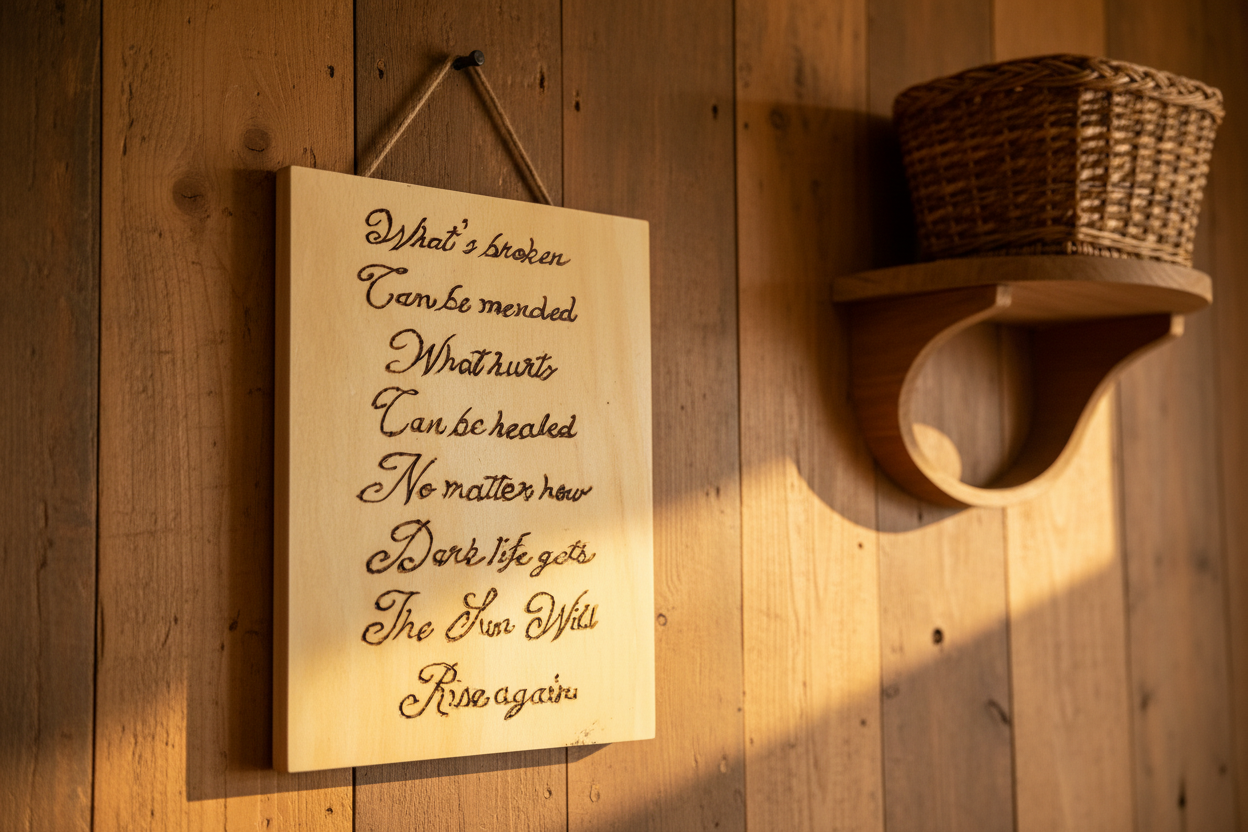 What's broken
Can be mended
What hurts
Can be healed
No matter how
Dark life gets
The Sun Will
Rise again